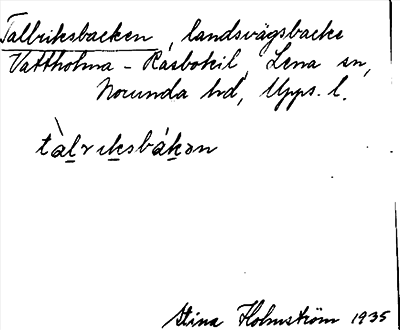 Tallriksbacken, landsvägsbacke
Vattholma - Rasbokil, Lena sn,
Norunda hd, Upps. l.
tàl̲rik̲sbák̲ən
Stina Holmström 1935